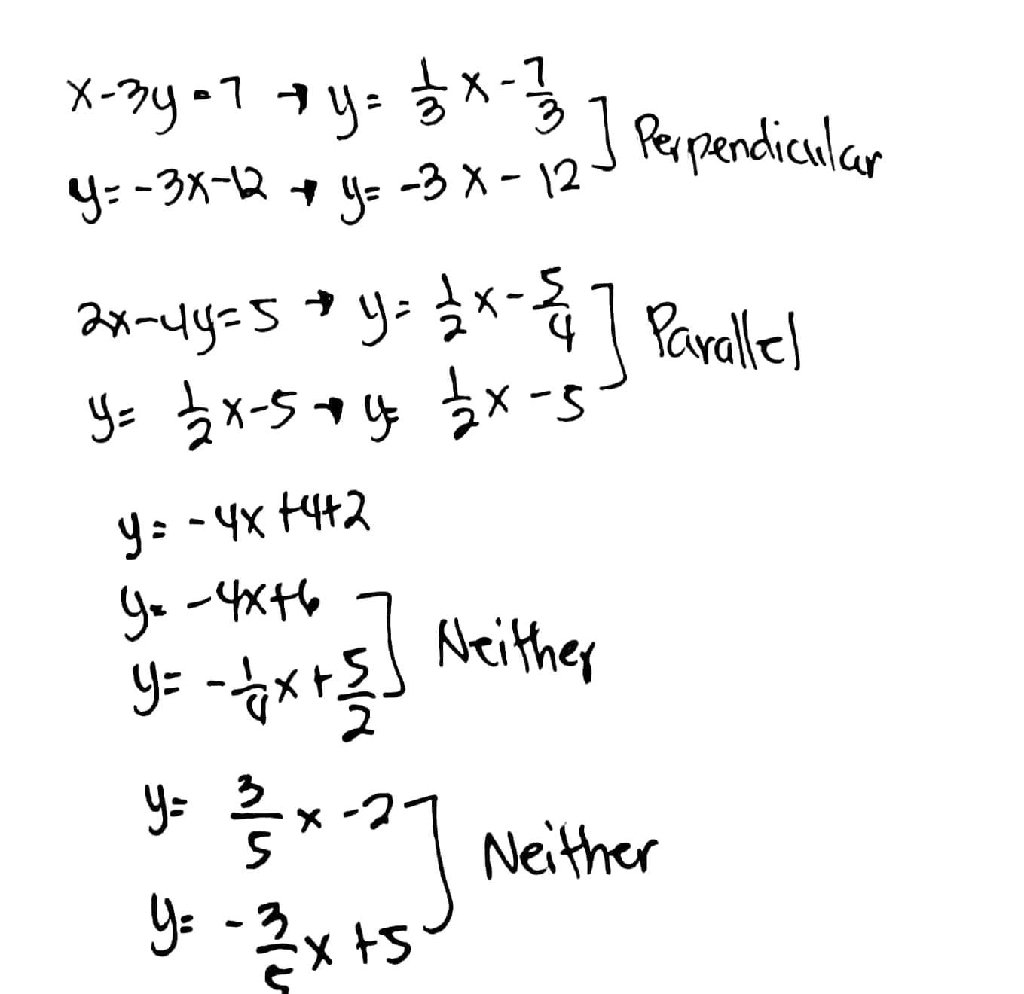 x-3y=7 → y= 1/3 x - 7/3
y=-3x-12 → y= -3x - 12 ] Perpendicular
2x-4y=5 → y= 1/2 x - 5/4
y= 1/2 x-5 → y= 1/2 x - 5 ] Parallel
y= -4x +4+2
y= -4x+6
y= -1/4 x + 5/2 ] Neither
y= 3/5 x -2
y= -3/5 x +5 ] Neither